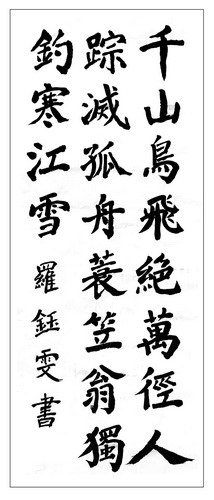 千山鳥飛絕萬徑人
踪滅孤舟蓑笠翁獨
釣寒江雪
羅鈺雯書